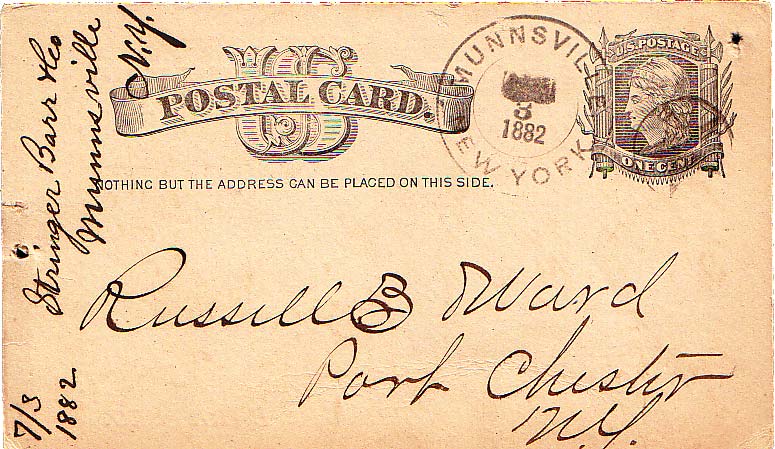 U.S. POSTAGE
US
POSTAL CARD.
ONE CENT
NOTHING BUT THE ADDRESS CAN BE PLACED ON THIS SIDE.
MUNNSVILLE
8
1882
NEW YORK
Russell B Ward
Port Chester
N.Y.
Stringer Barr &Co
Munnsville
N.Y.
7/3
1882